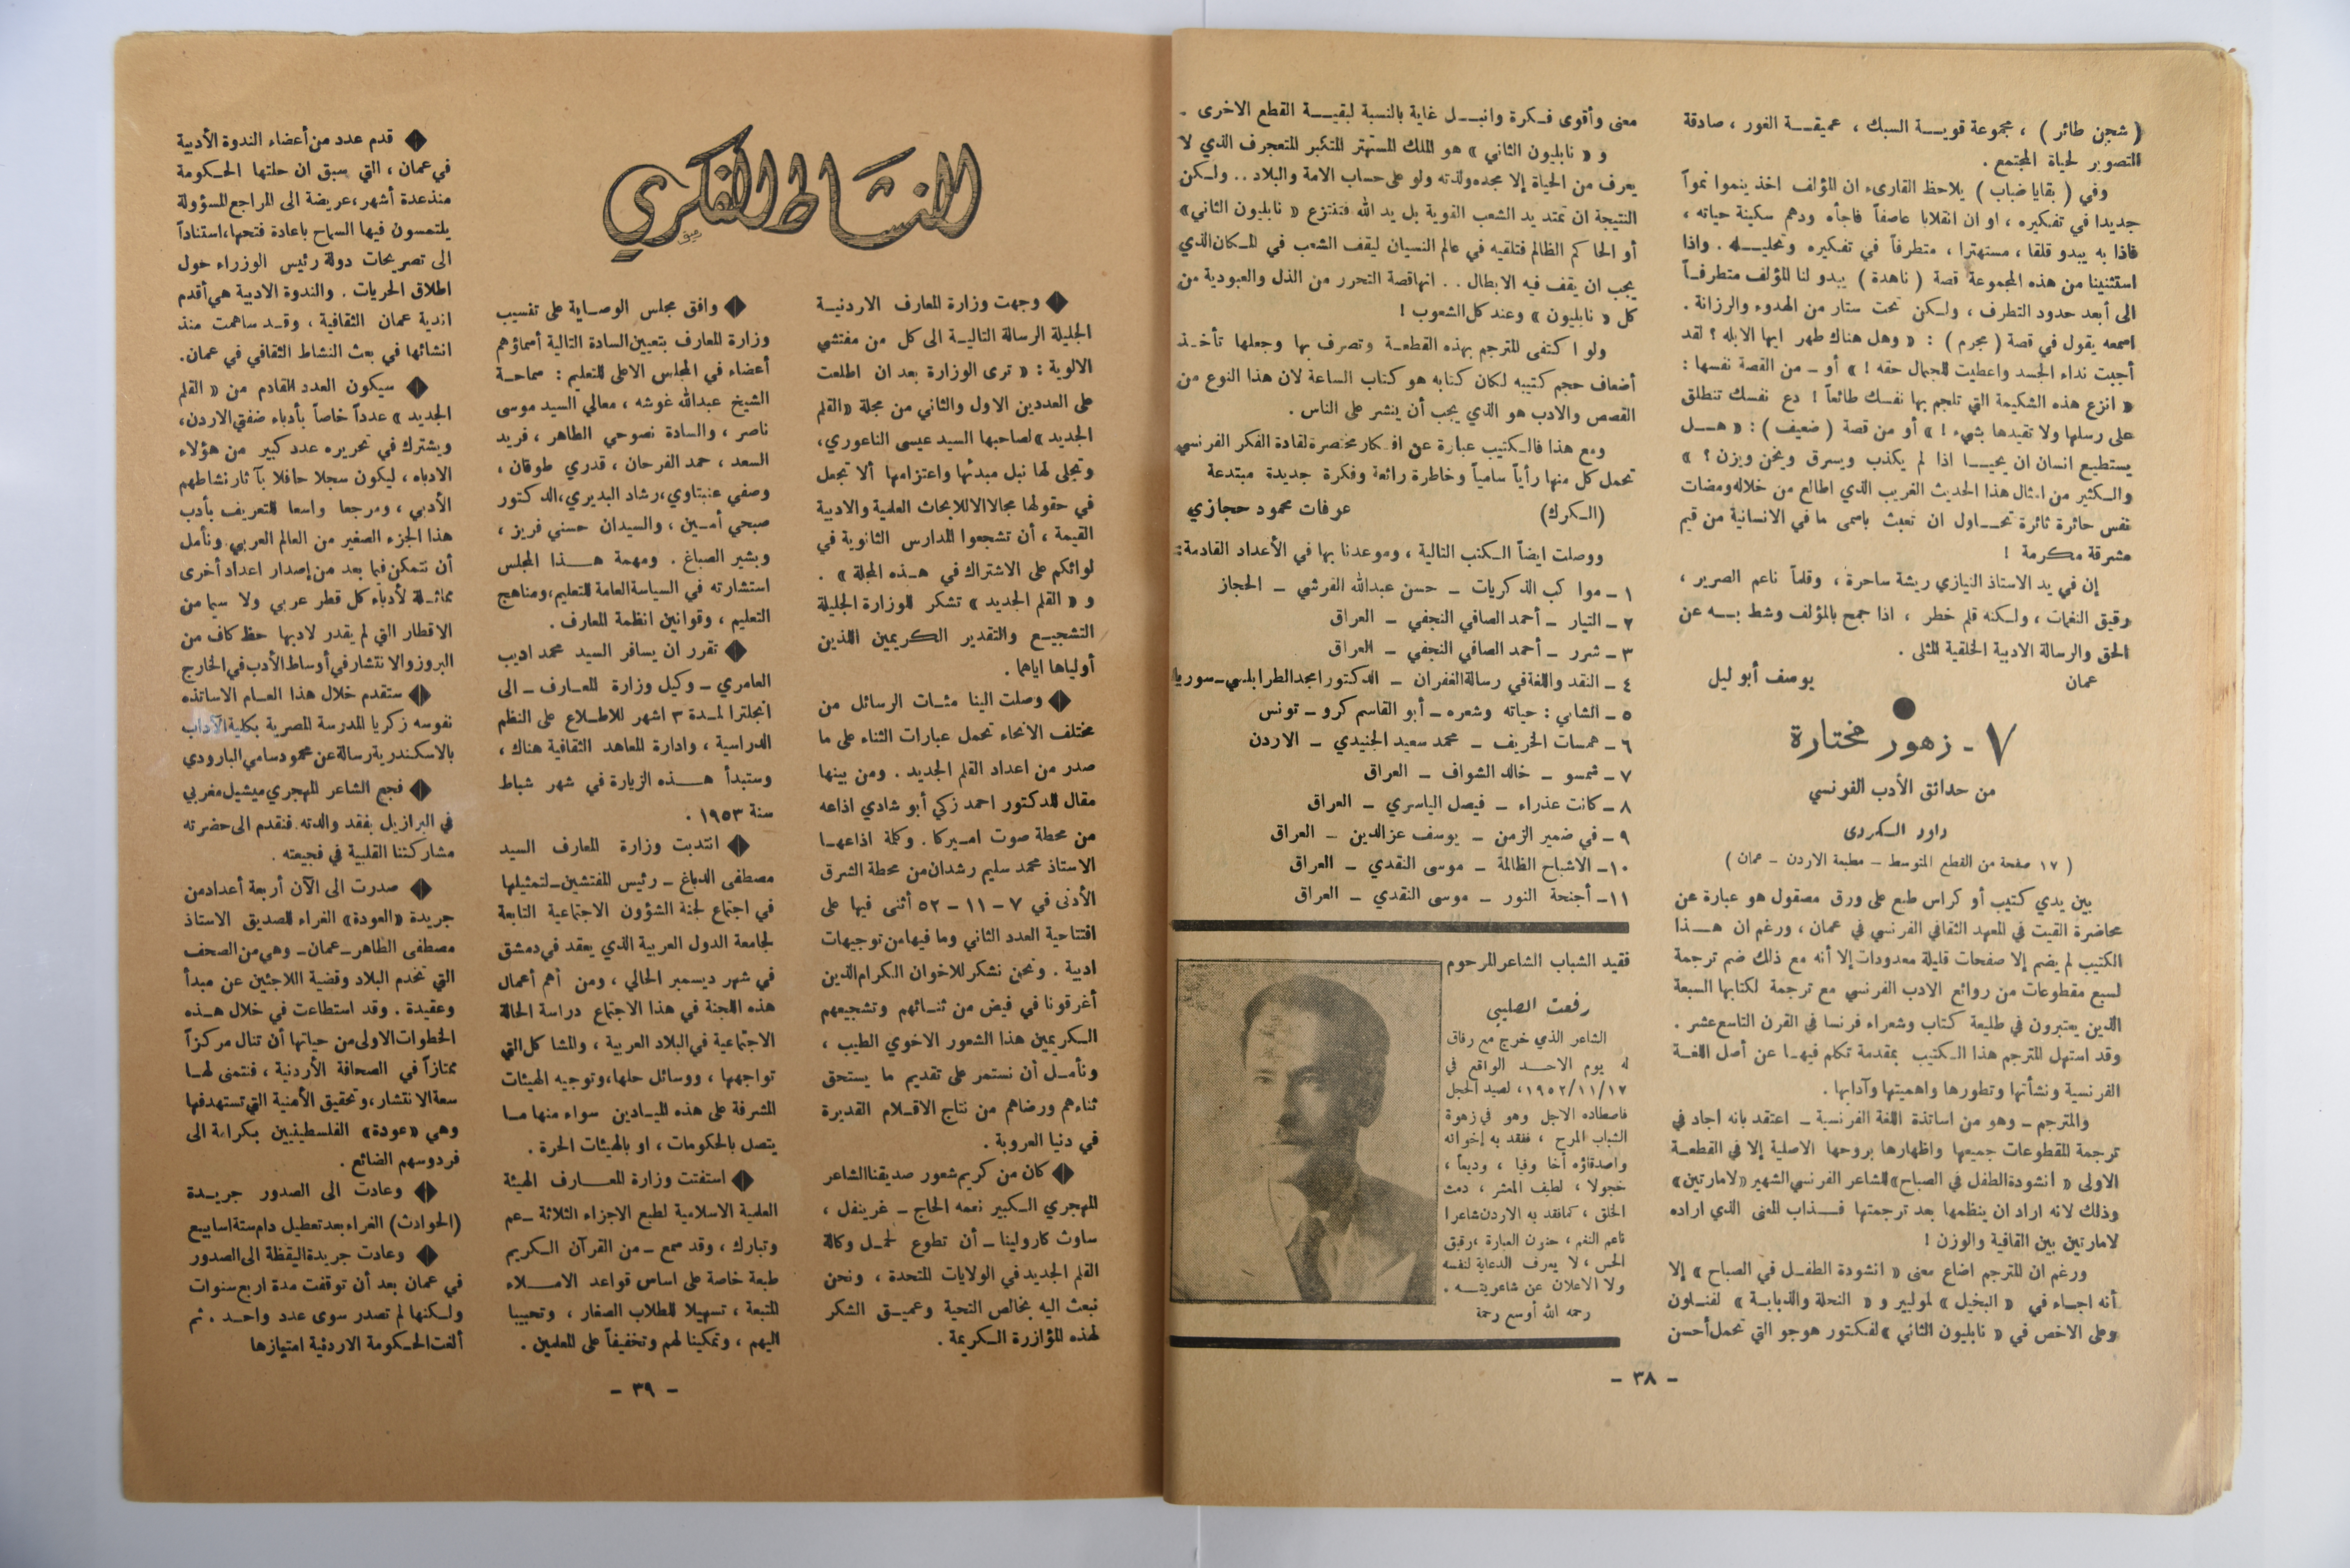 ( شجن طائر ) ، مجموعة قويــة السبك ، عميقــة الغور ، صادقة
التصوير لحياة المجتمع .
وفي ( بقايا ضباب ) يلاحظ القارىء ان المؤلف اخذ ينموا نمواً
جديدا في تفكيره ، او ان انقلابا عاصفاً فاجأه ودهم سكينة حياته ،
فاذا به يبدو قلقا ، مستهترا ، متطرفاً في تفكيره وتحليــله . واذا
استثنينا من هذه المجموعة قصة ( ناهدة ) يبدو لنا المؤلف متطرفــاً
الى أبعد حدود التطرف ، ولكن تحت ستار من الهدوء والرزانة .
اسمعه يقول في قصة ( مجرم ) : « وهل هناك طهر ايها الابله ؟ لقد
أجبت نداء الجسد واعطيت للجمال حقه ! » أو – من القصة نفسها :
« انزع هذه الشكيمة التي تلجم بها نفسك طائعاً ! دع نفسك تنطلق
على رسلها ولا تقيدها بشيء ! » أو من قصة ( ضعيف ) : « هــل
يستطيع انسان ان يحيــا اذا لم يكذب ويسرق ويخن ويزن ؟ »
والكثير من امثال هذا الحديث الغريب الذي اطالع من خلاله ومضات
نفس حائرة ثائرة تحــاول ان تعبث باسمى ما في الانسانية من قيم
مشرقة مكرمة !
إن في يد الاستاذ النيازي ريشة ساحرة ، وقلماً ناعم الصرير ،
رقيق النغمات ، ولكنه قلم خطر ، اذا جمح بالمؤلف وشط بــه عن
الحق والرسالة الادبية الخلقية المثلى .
عمان يوسف أبو ليل
٧ - زهور مختارة
من حدائق الأدب الفرنسي
داود الكردي
( ١٧ صفحة من القطع المتوسط – مطبعة الاردن – عمان )
بين يدي كتيب أو كراس طبع على ورق مصقول هو عبارة عن
محاضرة القيت في المعهد الثقافي الفرنسي في عمان ، ورغم ان هــذا
الكتيب لم يضم إلا صفحات قليلة معدودات إلا أنه مع ذلك ضم ترجمة
لسبع مقطوعات من روائع الادب الفرنسي مع ترجمة لكتابها السبعة
الذين يعتبرون في طليعة كتاب وشعراء فرنسا في القرن التاسع عشر .
وقد استهل المترجم هذا الكتيب بمقدمة تكلم فيهـا عن أصل اللغــة
الفرنسية ونشأتها وتطورها واهميتها وآدابها .
والمترجم – وهو من اساتذة اللغة الفرنسية – اعتقد بانه اجاد في
ترجمة المقطوعات جميعها واظهارها بروحها الاصلية إلا في القطعــة
الاولى « انشودة الطفل في الصباح » للشاعر الفرنسي الشهير « لامارتين »
وذلك لانه اراد ان ينظمها بعد ترجمتها فــذاب المعنى الذي اراده
لامارتين بين القافية والوزن !
ورغم ان المترجم اضاع معنى « انشودة الطفــل في الصباح » إلا
أنه اجــاء في « البخيل » لمولبير و « النحلة والذبابــة » لفنــلون
وعلى الاخص في « نابليون الثاني » لفكتور هوجو التي تحمل أحسن
معنى وأقوى فــكرة وانبــل غاية بالنسبة لبقيــة القطع الاخرى .
و « نابليون الثاني » هو الملك المستهتر المتكبر المتعجرف الذي لا
يعرف من الحياة إلا مجده ولذته ولو على حساب الامة والبلاد .. ولكن
النتيجة ان تمتد يد الشعب القوية بل يد الله فتنتزع « نابليون الثاني »
أو الحاكم الظالم فتلقيه في عالم النسيان ليقف الشعب في المكان الذي
يجب ان يقف فيه الابطال .. انها قصة التحرر من الذل والعبودية من
كل « نابليون » وعند كل الشعوب !
ولو اكتفى المترجم بهذه القطعــة وتصرف بها وجعلها تأخــذ
أضعاف حجم كتيبه لكان كتابه هو كتاب الساعة لان هذا النوع من
القصص والادب هو الذي يجب أن ينشر على الناس .
ومع هذا فالكتيب عبارة عن افكار مختصرة لقادة الفكر الفرنسي
تحمل كل منها رأياً سامياً وخاطرة رائعة وفكرة جديدة مبتدعة
(الكرك) عرفات محمود حجازي
ووصلت ايضاً الكتب التالية ، وموعدنا بها في الأعداد القادمة:
١ – مواكب الذكريات – حسن عبدالله القرشي – الحجاز
٢ – التيار – أحمد الصافي النجفي – العراق
٣ – شرر – أحمد الصافي النجفي – العراق
٤ – النقد واللغة في رسالة الغفران – الدكتور امجد الطرابلسي – سوريا
٥ – الشابي : حياته وشعره – أبو القاسم كرو – تونس
٦ – همسات الخريف – محمد سعيد الجنيدي – الاردن
٧ – شمسو – خالد الشواف – العراق
٨ – كانت عذراء – فيصل الياسري – العراق
٩ – في ضمير الزمن – يوسف عزالدين – العراق
١٠– الاشباح الظالمة – موسى النقدي – العراق
١١– أجنحة النور – موسى النقدي – العراق
فقيد الشباب الشاعر المرحوم
رفعت الصليبي
الشاعر الذي خرج مع رفاق
له يوم الاحــد الواقع في
١٩٥٢/١١/١٧ ، لصيد الحجل
فاصطاده الاجل وهو في زهوة
الشباب المرح ، ففقد به إخوانه
واصدقاؤه أخا وفيا ، وديعاً ،
خجولا ، لطيف المعشر ، دمث
الخلق ، كما فقد به الاردن شاعرا
ناعم النغم ، حنون العبارة ، رقيق
الحس ، لا يعرف الدعاية لنفسه
ولا الاعلان عن شاعريتــه .
رحمه الله أوسع رحمة
– ٣٨ –
النشاط الفكري
وجهت وزارة المعارف الاردنيــة
الجليلة الرسالة التاليــة الى كل من مفتشي
الالوية : « ترى الوزارة بعد ان اطلعت
على العددين الاول والثاني من مجلة «القلم
الجديد» لصاحبها السيد عيسى الناعوري ،
وتجلى لها نبل مبدئها واعتزامها ألا تجعل
في حقولها مجالا الا للابحاث العلمية والادبية
القيمة ، أن تشجعوا المدارس الثانوية في
لوائكم على الاشتراك في هــذه المجلة » .
و « القلم الجديد » تشكر للوزارة الجليلة
التشجيــع والتقدير الكريمين اللذين
أولياها اياهما .
وصلت الينا مئــات الرسائل من
مختلف الانحاء تحمل عبارات الثناء على ما
صدر من اعداد القلم الجديد . ومن بينها
مقال للدكتور احمد زكي أبو شادي اذاعه
من محطة صوت امــيركا . وكلمة اذاعهــا
الاستاذ محمد سليم رشدان من محطة الشرق
الأدنى في ٧ – ١١ – ٥٢ أثنى فيها على
افتتاحية العدد الثاني وما فيها من توجيهات
ادبية . ونحن نشكر للاخوان الكرام الذين
أغرقونا في فيض من ثنــائهم وتشجيعهم
الكريمين هذا الشعور الاخوي الطيب ،
ونأمــل أن نستمر على تقديم ما يستحق
ثناءهم ورضاهم من نتاج الاقــلام القديرة
في دنيا العروبة .
كان من كريم شعور صديقنا الشاعر
المهجري الكبير نعمه الحاج – غرينفل ،
ساوث كارولينا – أن تطوع لحمــل وكالة
القلم الجديد في الولايات المتحدة ، ونحن
نبعث اليه بخالص التحية وعميــق الشكر
لهذه المؤازرة الكريمة .
وافق مجلس الوصــاية على تنسيب
وزارة المعارف بتعيين السادة التالية أسماؤهم
أعضاء في المجلس الاعلى للتعليم : سماحــة
الشيخ عبدالله غوشه ، معالي السيد موسى
ناصر ، والسادة نصوحي الطاهر ، فريد
السعد ، حمد الفرحان ، قدري طوقان ،
وصفي عنبتاوي ، رشاد البديري ، الدكتور
صبحي أمــين ، والسيدان حسني فريز ،
وبشير الصباغ . ومهمة هــذا المجلس
استشارته في السياسة العامة للتعليم ، ومناهج
التعليم ، وقوانين انظمة المعارف .
تقرر ان يسافر السيد محمد اديب
العامري – وكيل وزارة المعــارف – الى
انجلترا لمــدة ٣ اشهر للاطــلاع على النظم
الدراسية ، وادارة المعاهد الثقافية هناك ،
وستبدأ هــذه الزيارة في شهر شباط
سنة ١٩٥٣ .
انتدبت وزارة المعارف السيد
مصطفى الدباغ – رئيس المفتشين – لتمثيلها
في اجتماع لجنة الشؤون الاجتماعية التابعة
لجامعة الدول العربية الذي يعقد في دمشق
في شهر ديسمبر الحالي ، ومن أهم أعمال
هذه اللجنة في هذا الاجتماع دراسة الحالة
الاجتماعية في البلاد العربية ، والمشاكل التي
تواجهها ، ووسائل حلها ، وتوجيه الهيئات
المشرفة على هذه الميــادين سواء منها مــا
يتصل بالحكومات ، او بالهيئات الحرة .
استفتت وزارة المعــارف الهيئة
العلمية الاسلامية لطبع الاجزاء الثلاثة – عم
وتبارك ، وقد سمع – من القرآن الكريم
طبعة خاصة على اساس قواعد الامــلاء
المتبعة ، تسهيلا للطلاب الصغار ، وتحبيبا
اليهم ، وتمكينا لهم وتخفيفاً على المعلمين .
قدم عدد من أعضاء الندوة الأدبية
في عمان ، التي سبق ان حلتها الحكومة
منذ عدة أشهر ، عريضة الى المراجع المسؤولة
يلتمسون فيها السماح باعادة فتحها ، استناداً
الى تصريحات دولة رئيس الوزراء حول
اطلاق الحريات . والندوة الادبية هي أقدم
اندية عمان الثقافية ، وقــد ساهمت منذ
انشائها في بعث النشاط الثقافي في عمان .
سيكون العدد القادم من « القلم
الجديد » عدداً خاصاً بأدباء ضفتي الاردن ،
ويشترك في تحريره عدد كبير من هؤلاء
الادباء ، ليكون سجلا حافلا بآثار نشاطهم
الأدبي ، ومرجعا واسعا للتعريف بأدب
هذا الجزء الصغير من العالم العربي . ونأمل
أن نتمكن فيما بعد من إصدار اعداد أخرى
مماثــلة لأدباء كل قطر عربي ولا سيما من
الاقطار التي لم يقدر لادبها حظ كاف من
البروز والانتشار في أوساط الأدب في الخارج
ستقدم خلال هذا العــام الاساتذه
نفوسه زكريا المدرسة المصرية بكلية الآداب
بالاسكندرية رسالة عن محمود سامي البارودي
فجع الشاعر المهجري ميشيل مغربي
في البرازيل بفقد والدته . فنقدم الى حضرته
مشاركتنا القلبية في فجيعته .
صدرت الى الآن أربعة أعداد من
جريدة «العودة» الغراء للصديق الاستاذ
مصطفى الطاهر – عمان – وهي من الصحف
التي تخدم البلاد وقضية اللاجئين عن مبدأ
وعقيدة . وقد استطاعت في خلال هــذه
الخطوات الاولى من حياتها أن تنال مركزاً
ممتازاً في الصحافة الأردنية ، فنتمنى لهــا
سعة الانتشار ، وتحقيق الأمنية التي تستهدفها
وهي «عودة» الفلسطينيين بكرامة الى
فردوسهم الضائع .
وعادت الى الصدور جريــدة
(الحوادث) الغراء بعد تعطيل دام ستة اسابيع
وعادت جريدة اليقظة الى الصدور
في عمان بعد أن توقفت مدة اربع سنوات
ولكنها لم تصدر سوى عدد واحــد . ثم
ألغت الحكومة الاردنية امتيازها
– ٣٩ –